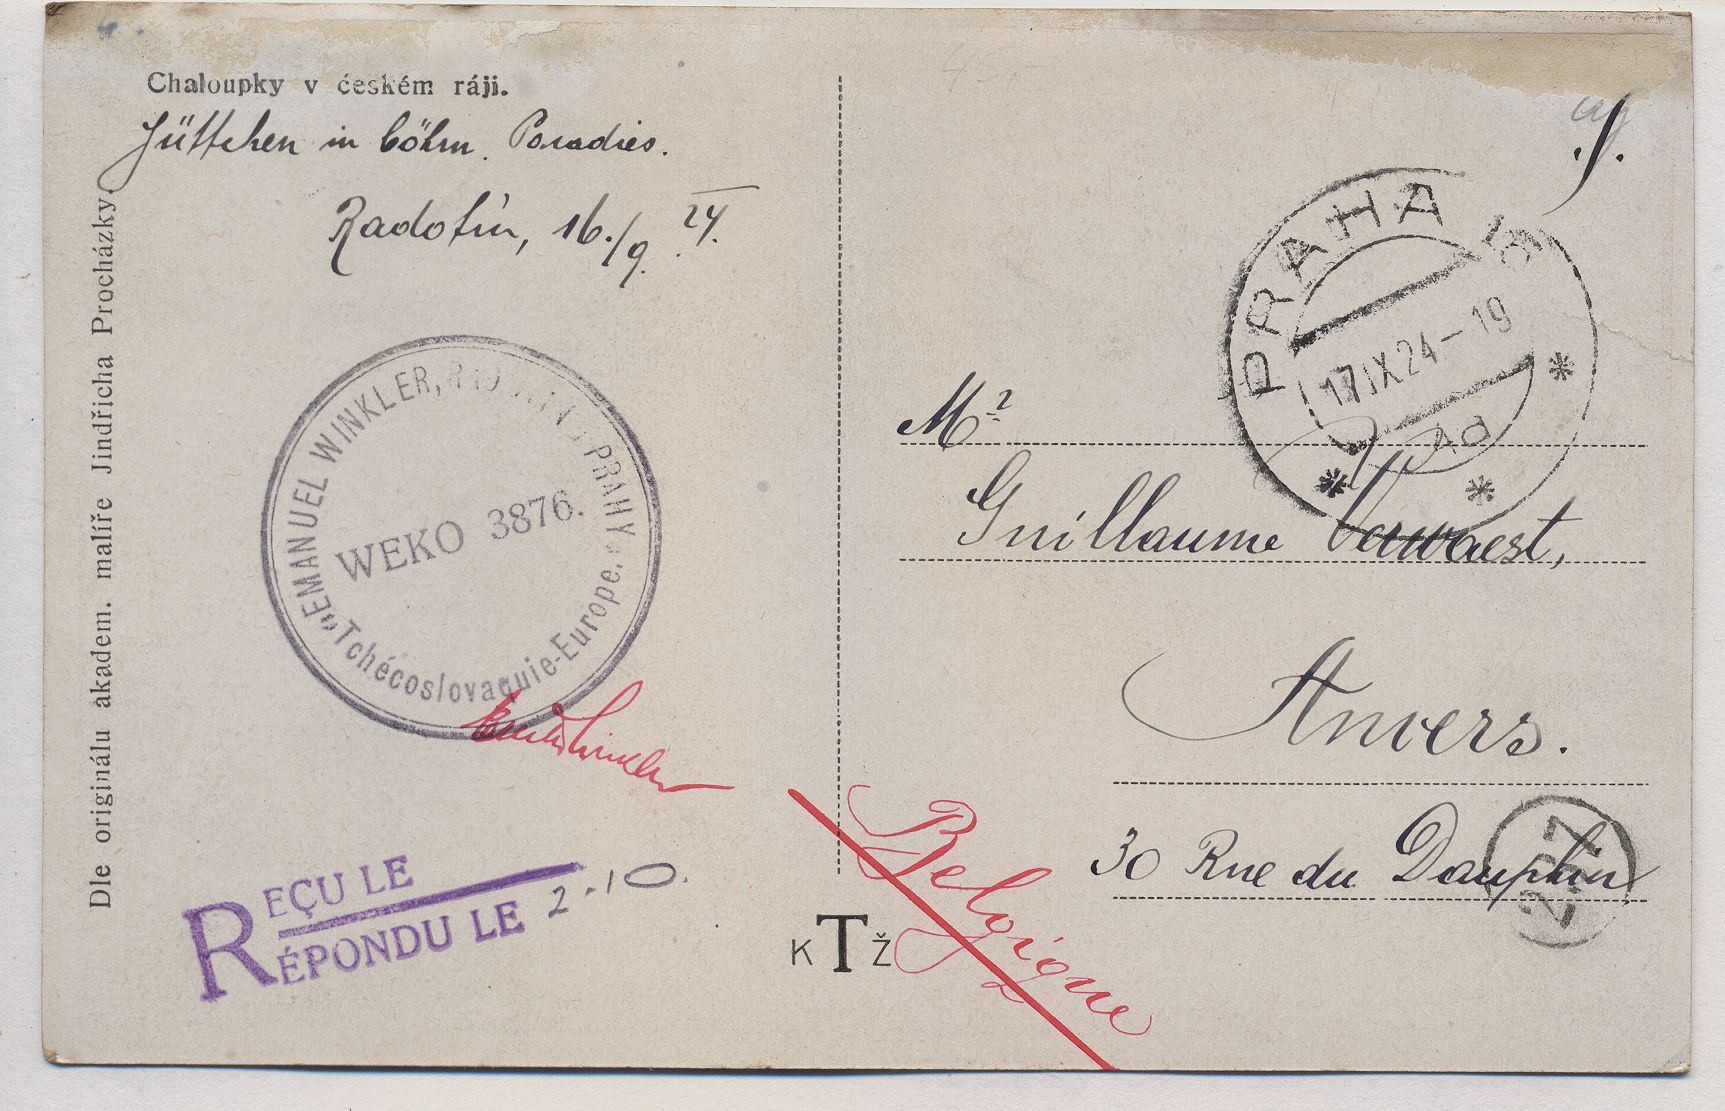 Chaloupky v českém ráji.
Hüttchen in böhm. Paradies.
Radotín, 16./9. 24.
Dle originálu akadem. malíře Jindřicha Procházky.
EMANUEL WINKLER, PRAHY
WEKO 3876.
Tchécoslovaquie-Europe.
REÇU LE
RÉPONDU LE 2.10.
K T Ž
45,-
PRAHA
17.IX.24-19
Mr
Guillaume Verwaest,
Anvers.
30 Rue du Dauphin
Belgique